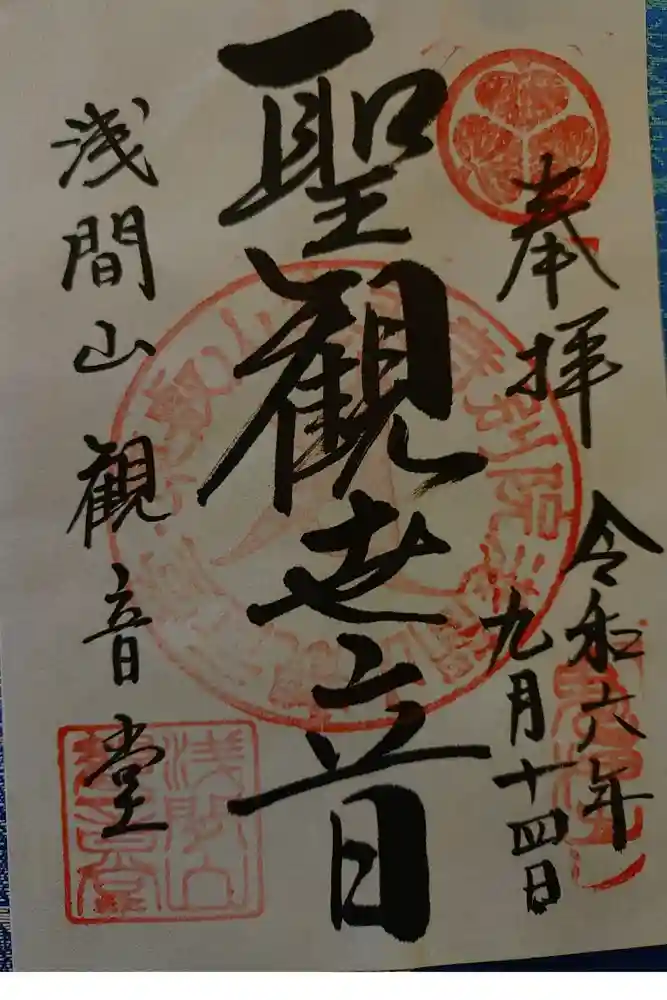 奉拝
令和六年
九月十四日
聖観世音
浅間山観音堂
浅間山
観音堂